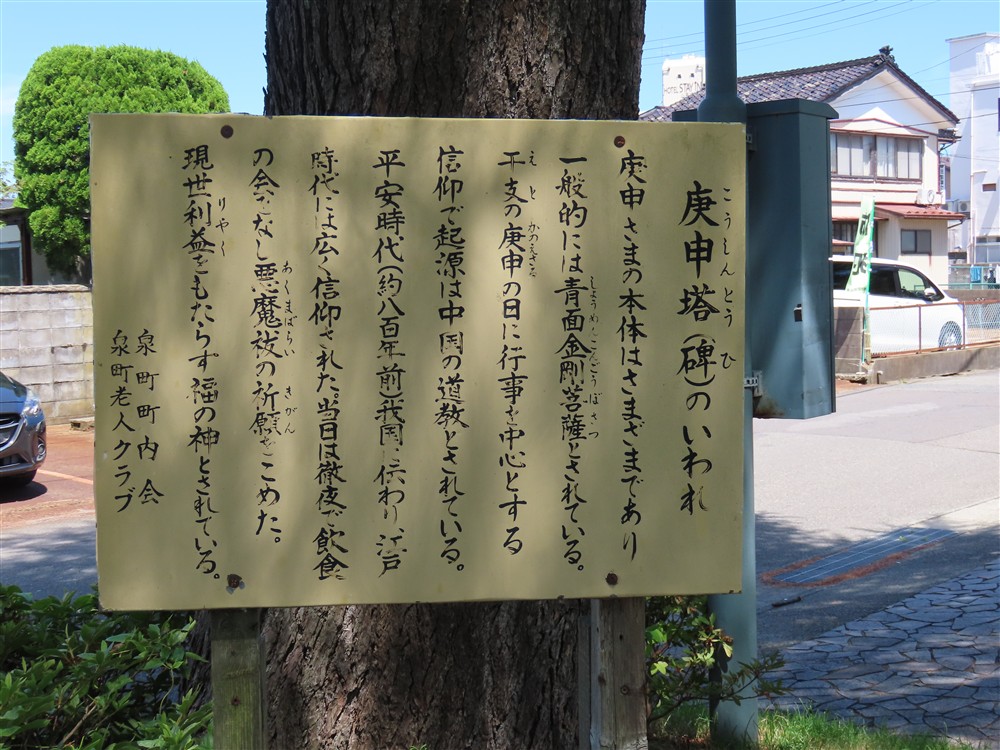 庚申塔(碑)のいわれ
こうしんとう ひ
庚申さまの本体はさまざまであり
一般的には青面金剛菩薩とされている。
しょうめんこんごうぼさつ
干支の庚申の日に行事を中心とする
えと かのえさる
信仰で起源は中国の道教とされている。
平安時代(約八百年前)我国に伝わり、江戸
時代には広く信仰された。当日は徹夜で飲食
の会をなし悪魔祓の祈願をこめた。
あくまばらい きがん
現世利益をもたらす福の神とされている。
りやく
泉町町内会
泉町老人クラブ
HOTEL STAY IN